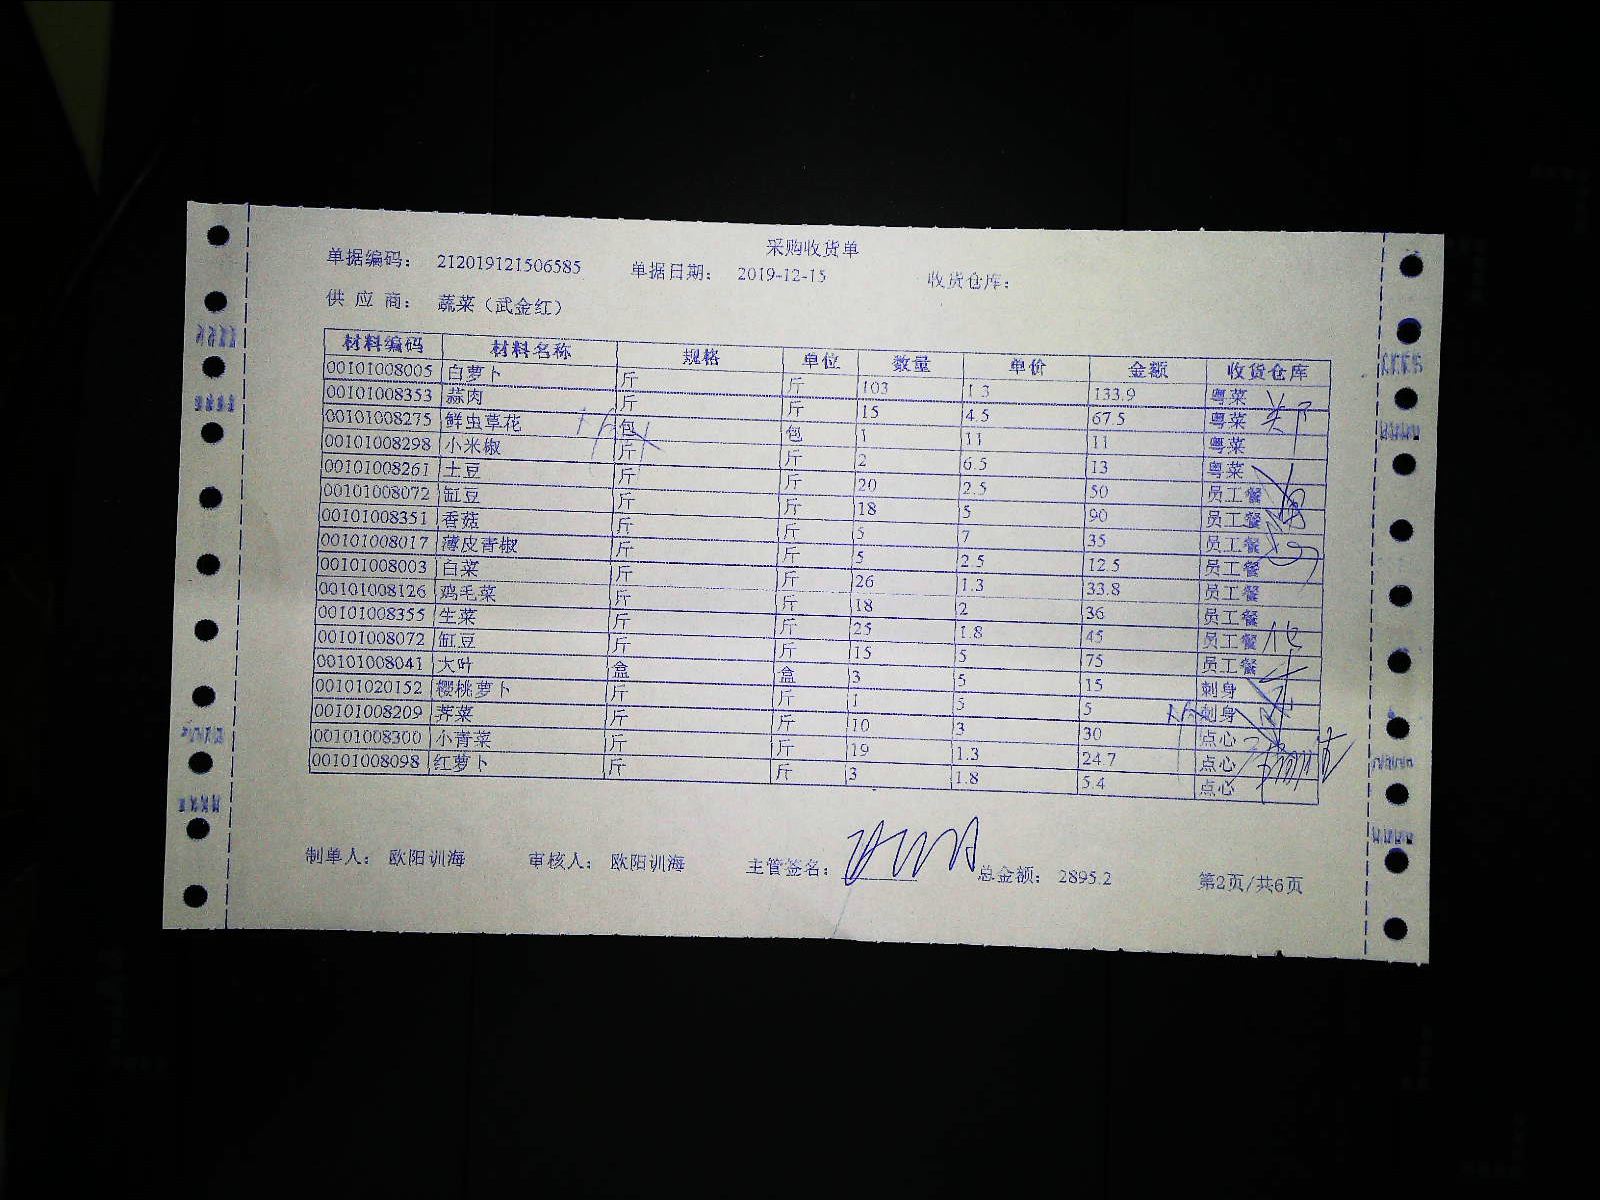 采购收货单
单据编码： 212019121506585 单据日期： 2019-12-15 收货仓库：
供 应 商： 蔬菜（武金红）
材料编码 材料名称 规格 单位 数量 单价 金额 收货仓库
00101008005 白萝卜 斤 斤 103 1.3 133.9 粤菜
00101008353 蒜肉 斤 斤 15 4.5 67.5 粤菜
00101008275 鲜虫草花 包 包 1 11 11 粤菜
00101008298 小米椒 斤 斤 2 6.5 13 粤菜
00101008261 土豆 斤 斤 20 2.5 50 员工餐
00101008072 缸豆 斤 斤 18 5 90 员工餐
00101008351 香菇 斤 斤 5 7 35 员工餐
00101008017 薄皮青椒 斤 斤 5 2.5 12.5 员工餐
00101008003 白菜 斤 斤 26 1.3 33.8 员工餐
00101008126 鸡毛菜 斤 斤 18 2 36 员工餐
00101008355 生菜 斤 斤 25 1.8 45 员工餐
00101008072 缸豆 斤 斤 15 5 75 员工餐
00101008041 大叶 盒 盒 3 5 15 刺身
00101020152 樱桃萝卜 斤 斤 1 5 5 刺身
00101008209 荠菜 斤 斤 10 3 30 点心
00101008300 小青菜 斤 斤 19 1.3 24.7 点心
00101008098 红萝卜 斤 斤 3 1.8 5.4 点心
制单人： 欧阳训海 审核人： 欧阳训海 主管签名： 总金额： 2895.2 第2页/共6页